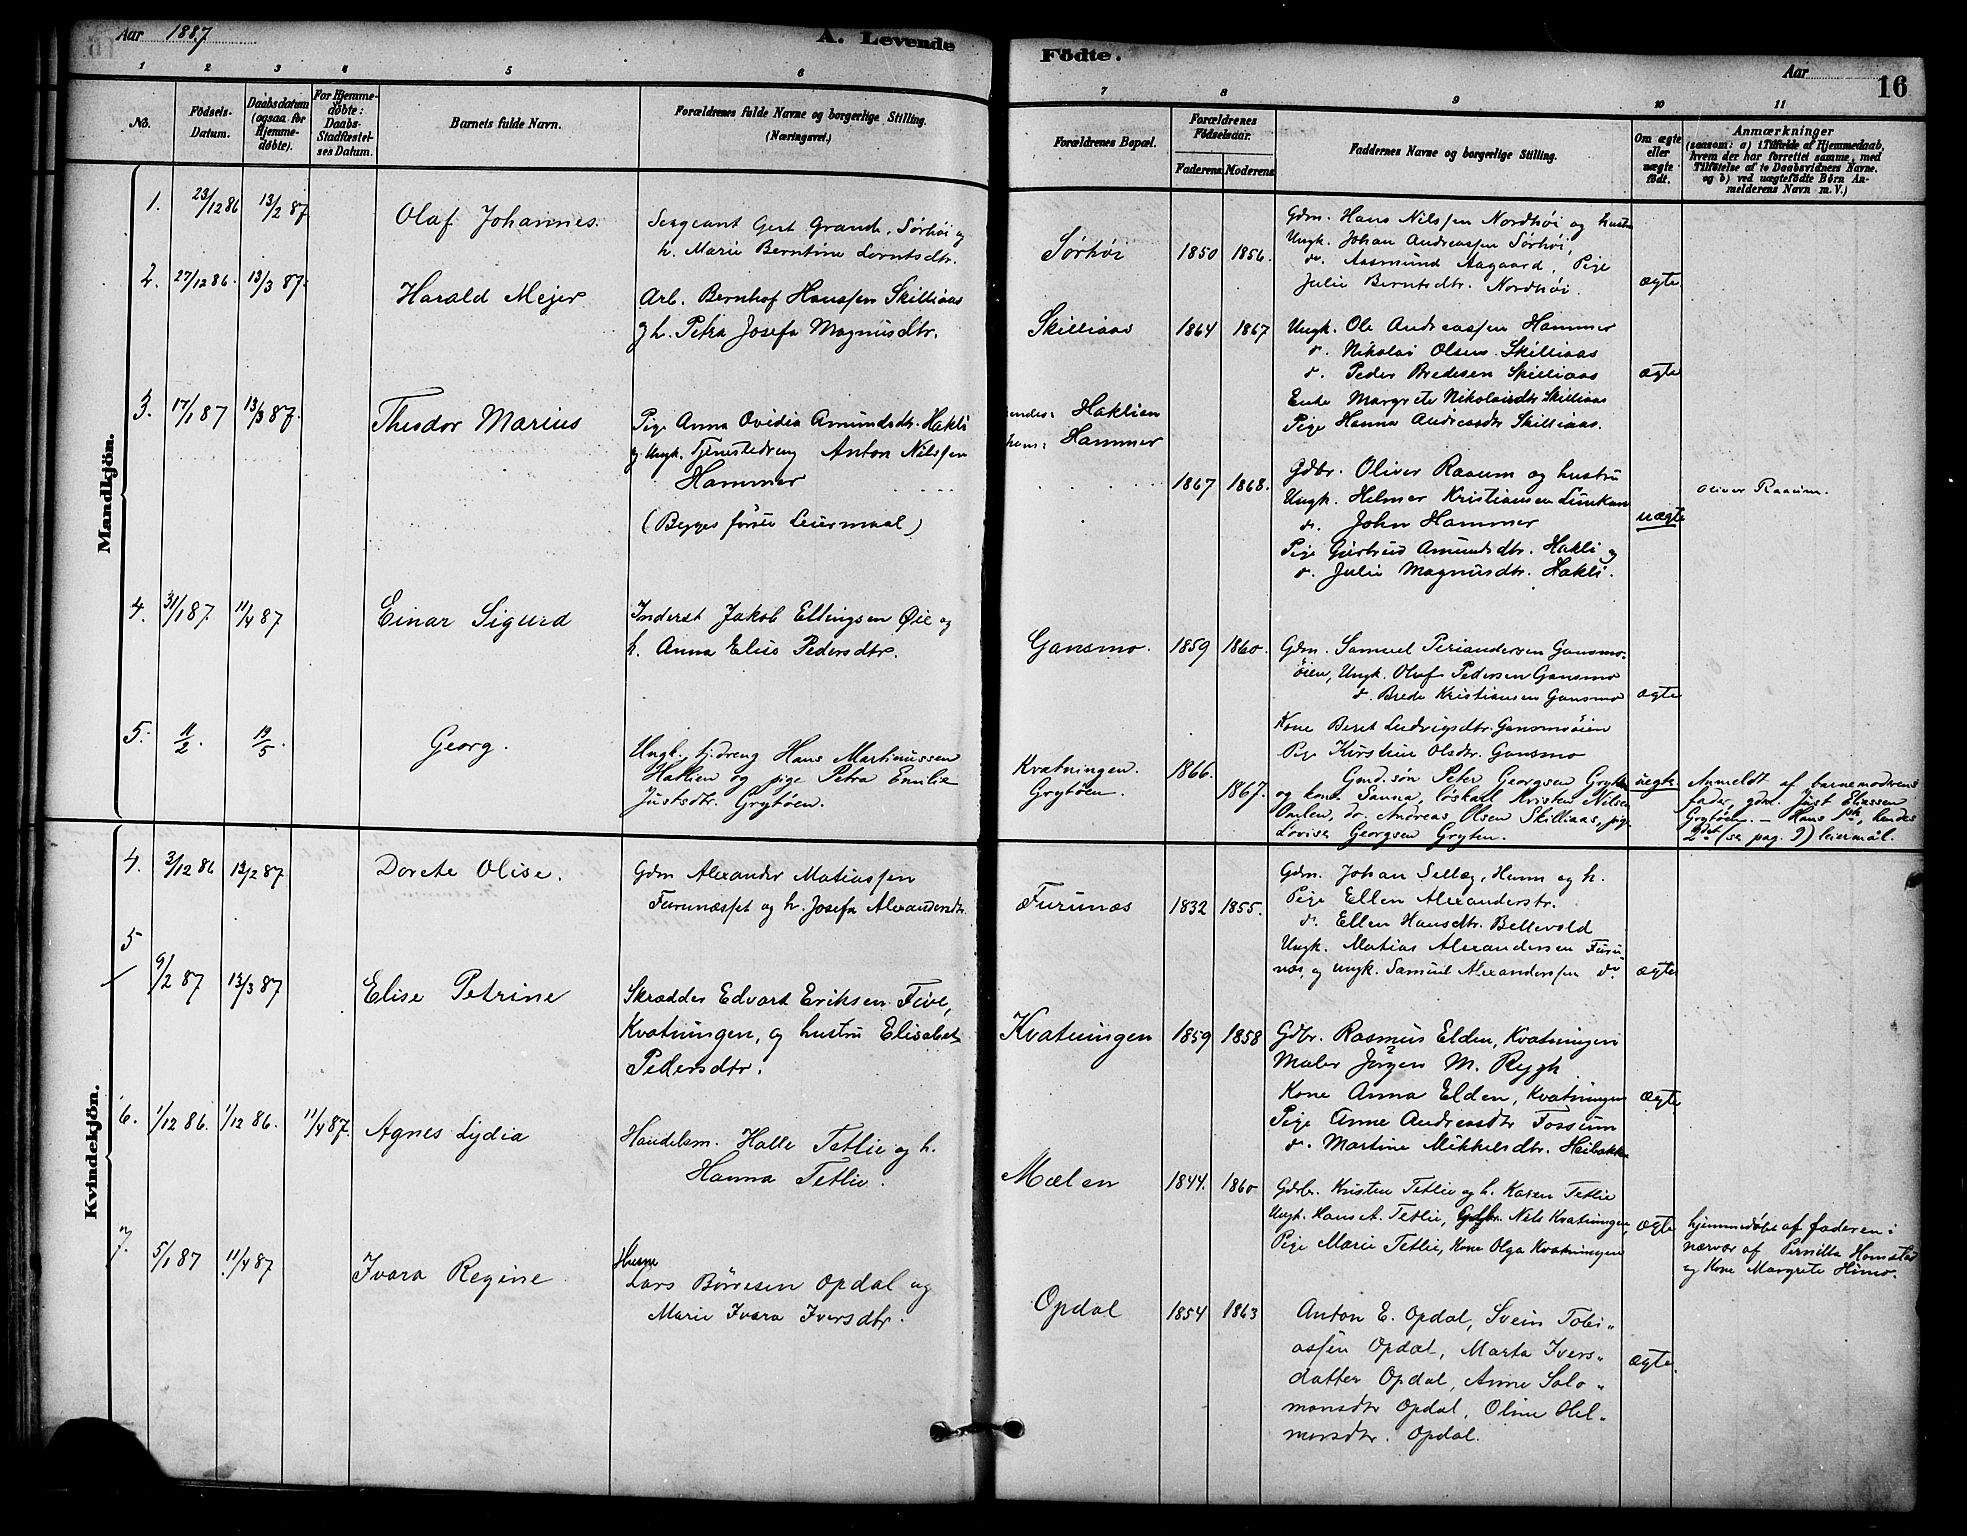 Aar 1887
A. Levende
Födte.
Aar
16
1 2 3 4 5 6
7 8 9 10 11
No.
Födsels-
Datum.
Daabsdatum
(ogsaa for
Hjemme-
døbte).
For Hjemme-
døbte:
Daabs-
Stadfæstel-
ses Datum.
Barnets fulde Navn.
Forældrenes fulde Navne og borgerlige Stilling.
(Næringsvei.)
Forældrenes Bopæl.
Forældrenes
Födselsaar.
Faderens Moderens
Faddernes Navne og borgerlige Stilling.
Om ægte
eller
uægte
født.
Anmærkninger
(saasom: a) i Tilfælde af Hjemmedaab,
hvem der har forrettet samme, med
Tilføielse af to Daabsvidners Navne.
og b) ved uægtefödte Börn An-
melderens Navn m. V.)
Mandkjön.
1. 23/12 86 13/2 87 Olaf Johannes.
Sergeant Gert Grande, Sørhöi og
h. Marie Berntine Lorntsdtr.
Sørhöi 1850 1856.
Gdm. Hans Nilssen Nordhöi og hustru
Ungk. Johan Andreassen Sörhöi,
do. Aasmund Aagaard, Pige
Julie Berntsdtr. Nordhöi.
ægte
2. 27/12 86. 13/3 87. Harald Mejer
Arb. Bernhof Hanssen Skilliaas
og h. Petra Josefa Magnusdtr.
Skilliaas 1864 1867
Ungk. Ole Andreassen Hammer
d. Nikolai Olsen Skilliaas
d. Peder Bredesen Skilliaas
Enke Margrete Nikolaisdtr Skilliaas
Pige Hanna Andreasdtr Skilliaas.
ægte
3. 17/1 87 13/3 87. Theodor Marius
Pige Anna Ovidia Amundsdtr. Hakli
og Ungk. Tjenestedreng Anton Nilssen
Hammer
(Begges første Leiermaal)
hendes: Haklien
hans: Hammer
1867 1868.
Gdbr. Oliver Raaum og hustru
Ungk. Helmer Kristiansen
d. John Hammer
Pige Gurtrud Amundsdtr. Hakli og
d. Julie Magnusdtr. Hakli.
uægte
Oliver Raaum.
4. 31/1 87. 11/4 87 Einar Sigurd
Inderst Jakob Ellingsen Øie og
h. Anna Elise Pedersdtr.
Gansmo. 1859 1860.
Gdm. Samuel Periandersen Gansmo-
öien, Ungk. Olaf Pedersen Gansmo
d. Brede Kristiansen Gansmo
Kone Beret Ludvigsdtr. Gansmoöien
Pige Kirstine Olsdtr. Gansmo
ægte
5. 11/2. 19/5. Georg.
Ungk. tj.dreng Hans Martinussen
Haklien og pige Petra Emilie
Justsdtr. Grytöen.
Kvatningen.
Grytöen.
1866.
1867.
Gmd.sön Peter Georgsen Gryten
og kone Sanna, löskarl Kristen Nilsen
Omlen, do. Andreas Olsen Skilliaas, pige
Lovise Georgsen Gryten.
uægte
Anmeldt af barnemodrens
fader, gdm. Just Eliassen
Grytöen. – Hans 1ste, hendes
2det (se pag. 9) leiermål.
Kvindekjön.
4. 3/12 86 13/2 87 Dorete Olise.
Gdm Alexander Matiassen
Furunæsset og h. Josefa Alexandersdtr.
Furunæs 1832 1855.
Gdm. Johan Selleg, Humm og h.
Pige Ellen Alexanderstr.
d. Ellen Hansdtr. Bellevold
Ungk. Matias Alexandersen Furu-
næs, og ungk. Samuel Alexanderssen do.
ægte
5 9/2 87 13/3 87 Elise Petrine
Skrædder Edvart Eriksen Five,
Kvatningen, og hustru Elisabet
Pedersdtr.
Kvatningen 1859 1858
Gdbr. Rasmus Elden, Kvatningen
Maler Jörgen M. Rygh
Kone Anna Elden, Kvatningen
Pige Anne Andreasdtr Fossum
d. Martine Mikkelsdtr. Heibakken
Ægte
6. 1/12 86. 1/12 86. 11/4 87. Agnes Lydia
Handelsm. Halle Tetlie og h.
Hanna Tetlie.
Mælen 1844. 1860
Gdbr. Kristen Tetlie og h. Karen Tetlie
Ungk. Hans A. Tetlie, Nils Kvatningen,
Pige Marie Tetlie, Kone Olga Kvatningen
Ægte
hjemmedöbt af faderen i
nærvær af Pernilla Homstad
og Kone Margrete Himo.
7. 5/1 87 11/4 87 Ivara Regine
Husm
Lars Börresen Opdal og
Marie Ivara Iversdtr.
Opdal 1854 1863
Anton E. Opdal, Svein Tobi-
assen Opdal, Marta Ivers-
datter Opdal, Anne Salo-
monsdtr Opdal, Oline Hel-
morsdtr. Opdal.
Ægte.